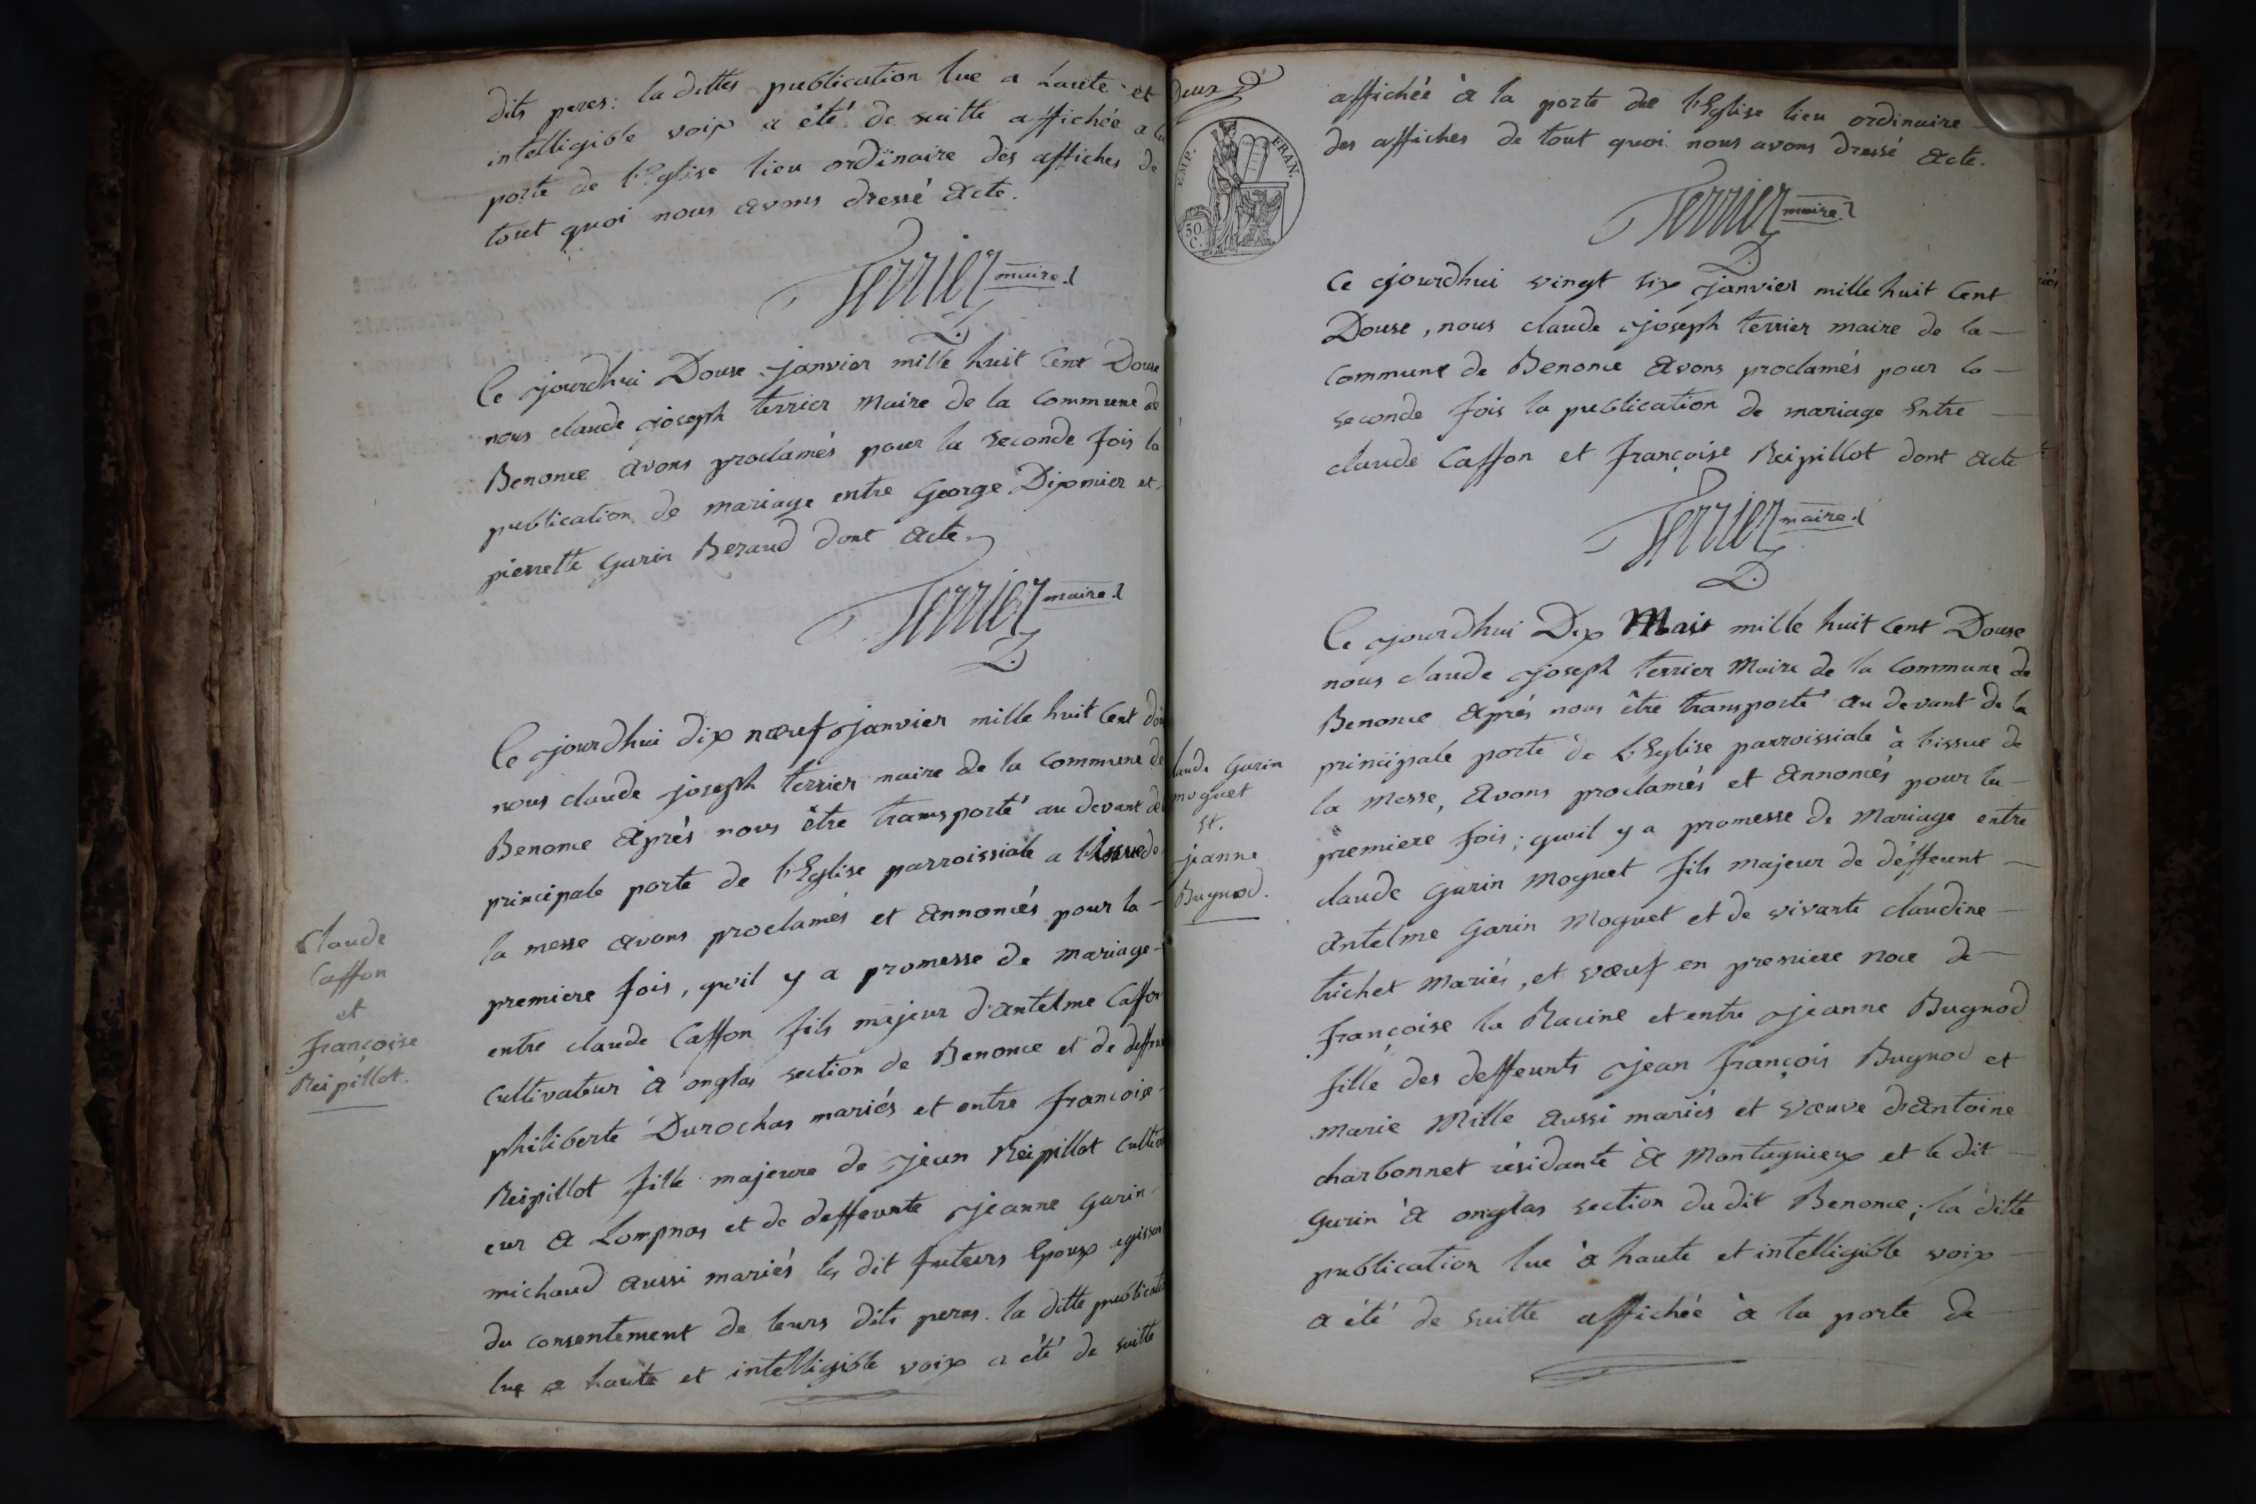 dits peres: la dittes publication lue a haute et
intelligible voix a été de suitte affichée a la
porte de l'Eglise lieu ordinaire des affiches de
tout quoi nous avons dressé acte.
Terrier maire
Ce jourdhui Douse janvier mille huit Cent Douse
nous claude joseph terrier Maire de la Commune de
Benonce avons proclamés pour la seconde fois la
publication de mariage entre George Dixmier et
pierrette Garin Beraud dont acte.
Terrier maire
Claude
Caffon
et
françoise
Reipillot.
Ce jourdhui dix nœuf janvier mille huit Cent
nous claude joseph terrier maire de la Commune de
Benonce après nous être transporté au devant de
principale porte de l'Eglise parroissiale a l'issue de
la messe avons proclamés et annoncés pour la
premiere fois, qu'il y a promesse de mariage
entre claude Caffon fils majeur d'antelme Caffon
Cultivateur à onglas section de Benonce et de
philiberte Durochas mariés et entre francoise
Reipillot fille majeure de jean Reipillot
eur a Lompnas et de deffeunte jeanne garin
michaud aussi mariés les dit futeurs Epoux
du consentement de leurs dits peres. la ditte
lue a haute et intelligible voix a été de suitte
deux
EMP. FRAN.
50 C.
affichée à la porte de l'Eglise lieu ordinaire
des affiches de tout quoi nous avons dressé acte.
Terrier maire
Ce jourdhui vingt six janvier mille huit Cent
Douse, nous claude joseph terrier maire de la
Commune de Benonce avons proclamés pour la
seconde fois la publication de mariage Entre
claude Caffon et françoise Reipillot dont acte
Terrier maire
laude Garin
moguet
et.
jeanne
Bugnod.
Ce jourdhui Dix Mais mille huit Cent Douse
nous claude joseph terrier Maire de la Commune de
Benonce après nous être transporté au devant de la
principale porte de l'Eglise parroissiale à l'issue de
la Messe, avons proclamés et annoncés pour la
premiere fois; qu'il y a promesse de Mariage entre
claude Garin Moguet fils majeur de déffeunt
antelme Garin Moguet et de vivante claudine
trichet Mariés, et vœuf en premiere noce de
françoise la Racine et entre jeanne Bugnod
fille des deffeunts jean françois Bugnod et
marie Mille aussi mariés et vœuve d'antoine
charbonnet résidante à Montagnieux et le dit
Garin à onglas section du dit Benonce; la ditte
publication lue à haute et intelligible voix
a été de suitte affichée à la porte de